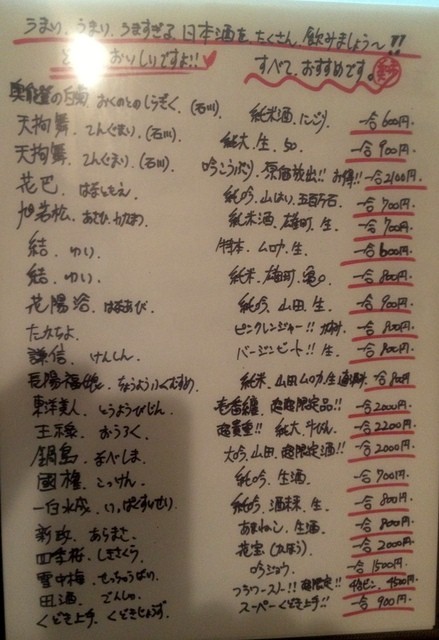 うまい、うまい、うますぎる、日本酒を、たくさん、飲みましょう〜!!
とてもおいしいですよ!! すべて、おすすめです。
奥能登の白菊 おくのとのしらぎく、(石川) 純米酒、にごり 一合600円
天狗舞、てんぐまい、(石川) 純大、生、50 一合900円
天狗舞、てんぐまい、(石川) 原価放出!! お得!! 一合2100円
花巴、はなともえ 純吟、山はい、五百万石 一合700円
旭若松、あさひわかまつ 純米酒、雄町、生 一合700円
結、ゆい 特本、ムロカ、生 一合600円
結、ゆい 純米、雄町、亀の 一合800円
花陽浴、はなあび 純吟、山田、生 一合900円
たかちよ ピンクレンジャー!! 一合800円
謙信、けんしん バージンビート!! 生 一合800円
長陽福娘、ちょうようふくむすめ 純米、山田、ムロカ、生 一合800円
東洋美人、とうようびじん 壱番纏、超超限定品!! 一合2000円
王祿、おうろく 超貴重!! 純大、牛びん 一合2200円
鍋島、なべしま 大吟、山田、超限定酒!! 一合2000円
國権、こっけん 純吟、生酒 一合700円
一白水成、いっぱくすいせい 純吟、酒未来、生 一合800円
新政、あらまさ あまねこ、生酒 一合800円
四季桜、しきさくら 花宝(かほう) 一合2000円
雪中梅、せっちゅうばい 吟ジョウ 一合1500円
田酒、でんしゅ フラワースノー!! 超限定!! 4合ビン、4500円
くどき上手、くどきじょうず スーパーくどき上手!! 一合900円